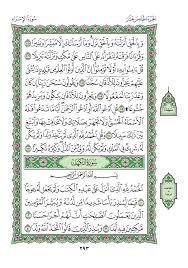 الجزء الخامس عشر
سورة الإسراء
وَبِٱلْحَقِّ أَنزَلْنَٰهُ وَبِٱلْحَقِّ نَزَلَ وَمَآ أَرْسَلْنَٰكَ إِلَّا مُبَشِّرًا وَنَذِيرًا ١٠٥
وَقُرْءَانًا فَرَقْنَٰهُ لِتَقْرَأَهُۥ عَلَى ٱلنَّاسِ عَلَىٰ مُكْثٍ وَنَزَّلْنَٰهُ تَنزِيلًا ١٠٦
قُلْ ءَامِنُوا۟ بِهِۦٓ أَوْ لَا تُؤْمِنُوٓا۟ إِنَّ ٱلَّذِينَ أُوتُوا۟ ٱلْعِلْمَ مِن قَبْلِهِۦٓ إِذَا يُتْلَىٰ
عَلَيْهِمْ يَخِرُّونَ لِلْأَذْقَانِ سُجَّدًا ١٠٧ وَيَقُولُونَ سُبْحَٰنَ رَبِّنَآ إِن كَانَ
وَعْدُ رَبِّنَا لَمَفْعُولًا ١٠٨ وَيَخِرُّونَ لِلْأَذْقَانِ يَبْكُونَ وَيَزِيدُهُمْ
خُشُوعًا ١٠٩ قُلِ ٱدْعُوا۟ ٱللَّهَ أَوِ ٱدْعُوا۟ ٱلرَّحْمَٰنَ أَيًّا مَّا تَدْعُوا۟ فَلَهُ ٱلْأَسْمَآءُ
ٱلْحُسْنَىٰ وَلَا تَجْهَرْ بِصَلَاتِكَ وَلَا تُخَافِتْ بِهَا وَٱبْتَغِ بَيْنَ ذَٰلِكَ سَبِيلًا ١١٠
وَقُلِ ٱلْحَمْدُ لِلَّهِ ٱلَّذِى لَمْ يَتَّخِذْ وَلَدًا وَلَمْ يَكُن لَّهُۥ شَرِيكٌ فِى
ٱلْمُلْكِ وَلَمْ يَكُن لَّهُۥ وَلِىٌّ مِّنَ ٱلذُّلِّ وَكَبِّرْهُ تَكْبِيرًا ١١١
سورة الكهف
بِسْمِ ٱللَّهِ ٱلرَّحْمَٰنِ ٱلرَّحِيمِ
ٱلْحَمْدُ لِلَّهِ ٱلَّذِىٓ أَنزَلَ عَلَىٰ عَبْدِهِ ٱلْكِتَٰبَ وَلَمْ يَجْعَل لَّهُۥ عِوَجَا ١
قَيِّمًا لِّيُنذِرَ بَأْسًا شَدِيدًا مِّن لَّدُنْهُ وَيُبَشِّرَ ٱلْمُؤْمِنِينَ ٱلَّذِينَ
يَعْمَلُونَ ٱلصَّٰلِحَٰتِ أَنَّ لَهُمْ أَجْرًا حَسَنًا ٢ مَّٰكِثِينَ فِيهِ
أَبَدًا ٣ وَيُنذِرَ ٱلَّذِينَ قَالُوا۟ ٱتَّخَذَ ٱللَّهُ وَلَدًا ٤
٢٩٣